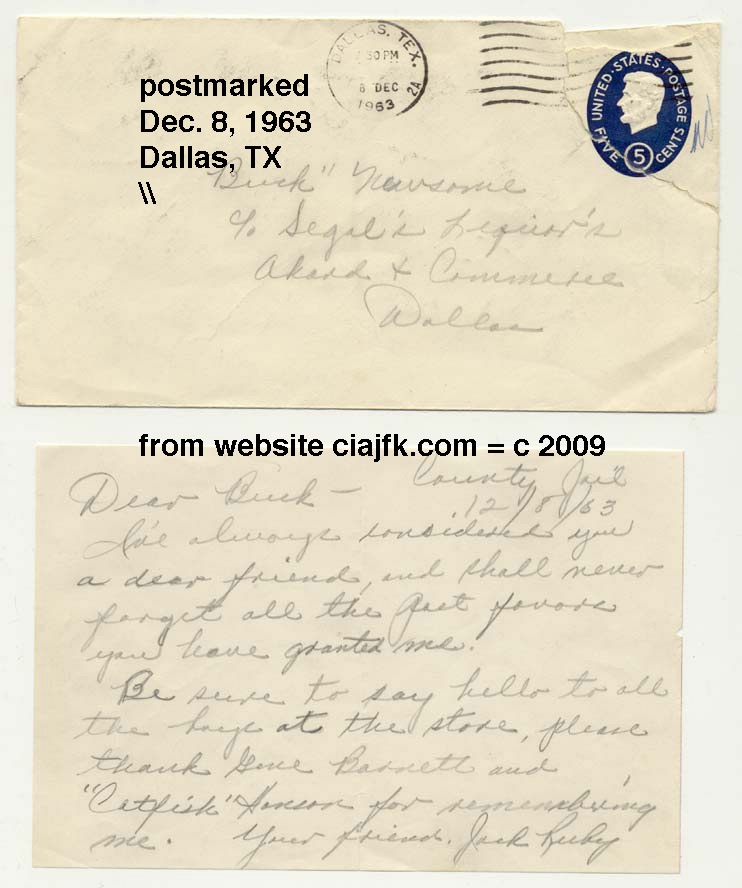 DALLAS, TEX.
30 PM
8 DEC
1963
2A
UNITED·STATES·POSTAGE
FIVE 5 CENTS
postmarked
Dec. 8, 1963
Dallas, TX
\\
"Buck" Newsome
c/o Segal's Liquor's
Akard & Commerce
Dallas
from website ciajfk.com = c 2009
County Jail
Dear Buck – 12/8/63
I've always considered you
a dear friend, and shall never
forget all the past favors
you have granted me.
Be sure to say hello to all
the boys at the store, please
thank Gene Barnett and
"Catfish" Hanson for remembering
me. Your friend, Jack Ruby